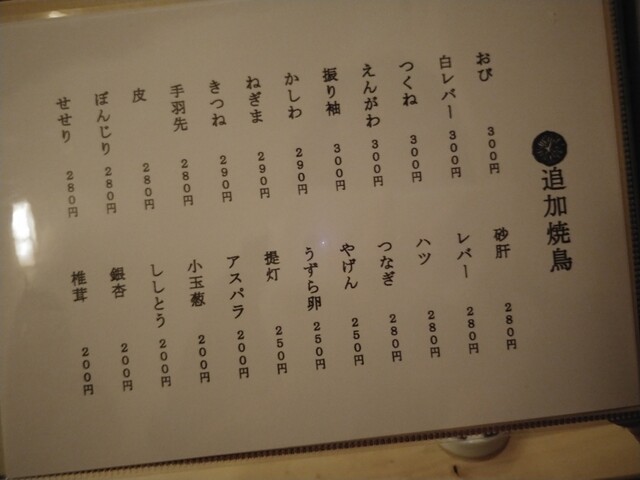 追加焼鳥
おび 300円
白レバー 300円
つくね 300円
えんがわ 300円
振り袖 300円
かしわ 290円
ねぎま 290円
きつね 290円
手羽先 280円
皮 280円
ぼんじり 280円
せせり 280円
砂肝 280円
レバー 280円
ハツ 280円
つなぎ 280円
やげん 250円
うずら卵 250円
提灯 250円
アスパラ 200円
小玉葱 200円
ししとう 200円
銀杏 200円
椎茸 200円